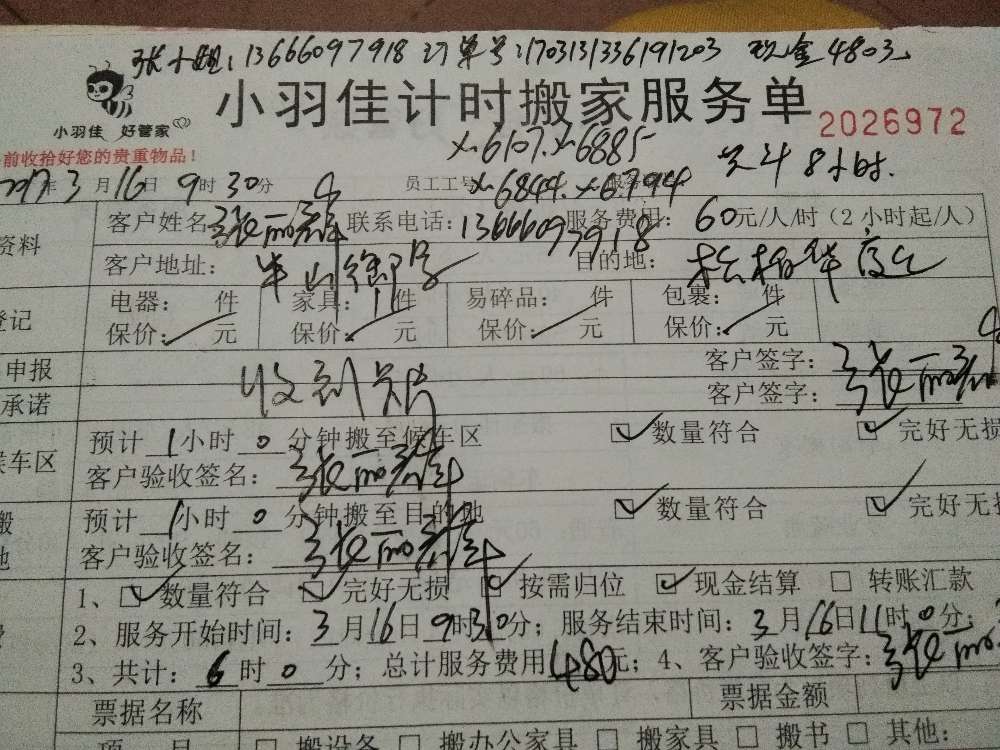 张小姐:13666097918 订单号:1703131336191203 现金480元
小羽佳计时搬家服务单
小羽佳 好管家
2026972
前收拾好您的贵重物品!
x-6107.x-6885
2017年3月16日9时30分 员工工号 x-6844.x-6794 共4 8小时.
资料 客户姓名 张 联系电话:13666097918 服务费用:60元/人/时(2小时起/人)
客户地址:半山御景 目的地:
登记 电器: 件 家具: 件 易碎品: 件 包裹: 件
保价: 元 保价: 元 保价: 元 保价: 元
申报 客户签字:张
承诺 客户签字:
候车区 预计1小时0分钟搬至候车区 数量符合 完好无损
客户验收签名:张
搬 预计1小时0分钟搬至目的地 数量符合 完好无损
地 客户验收签名:张
1、数量符合 完好无损 按需归位 现金结算 转账汇款
2、服务开始时间:3月16日9时30分;服务结束时间:3月16日11时0分;
3、共计:6时0分;总计服务费用480元;4、客户验收签字:张
票据名称 票据金额
项 目 搬设备 搬办公家具 搬家具 搬书 其他: